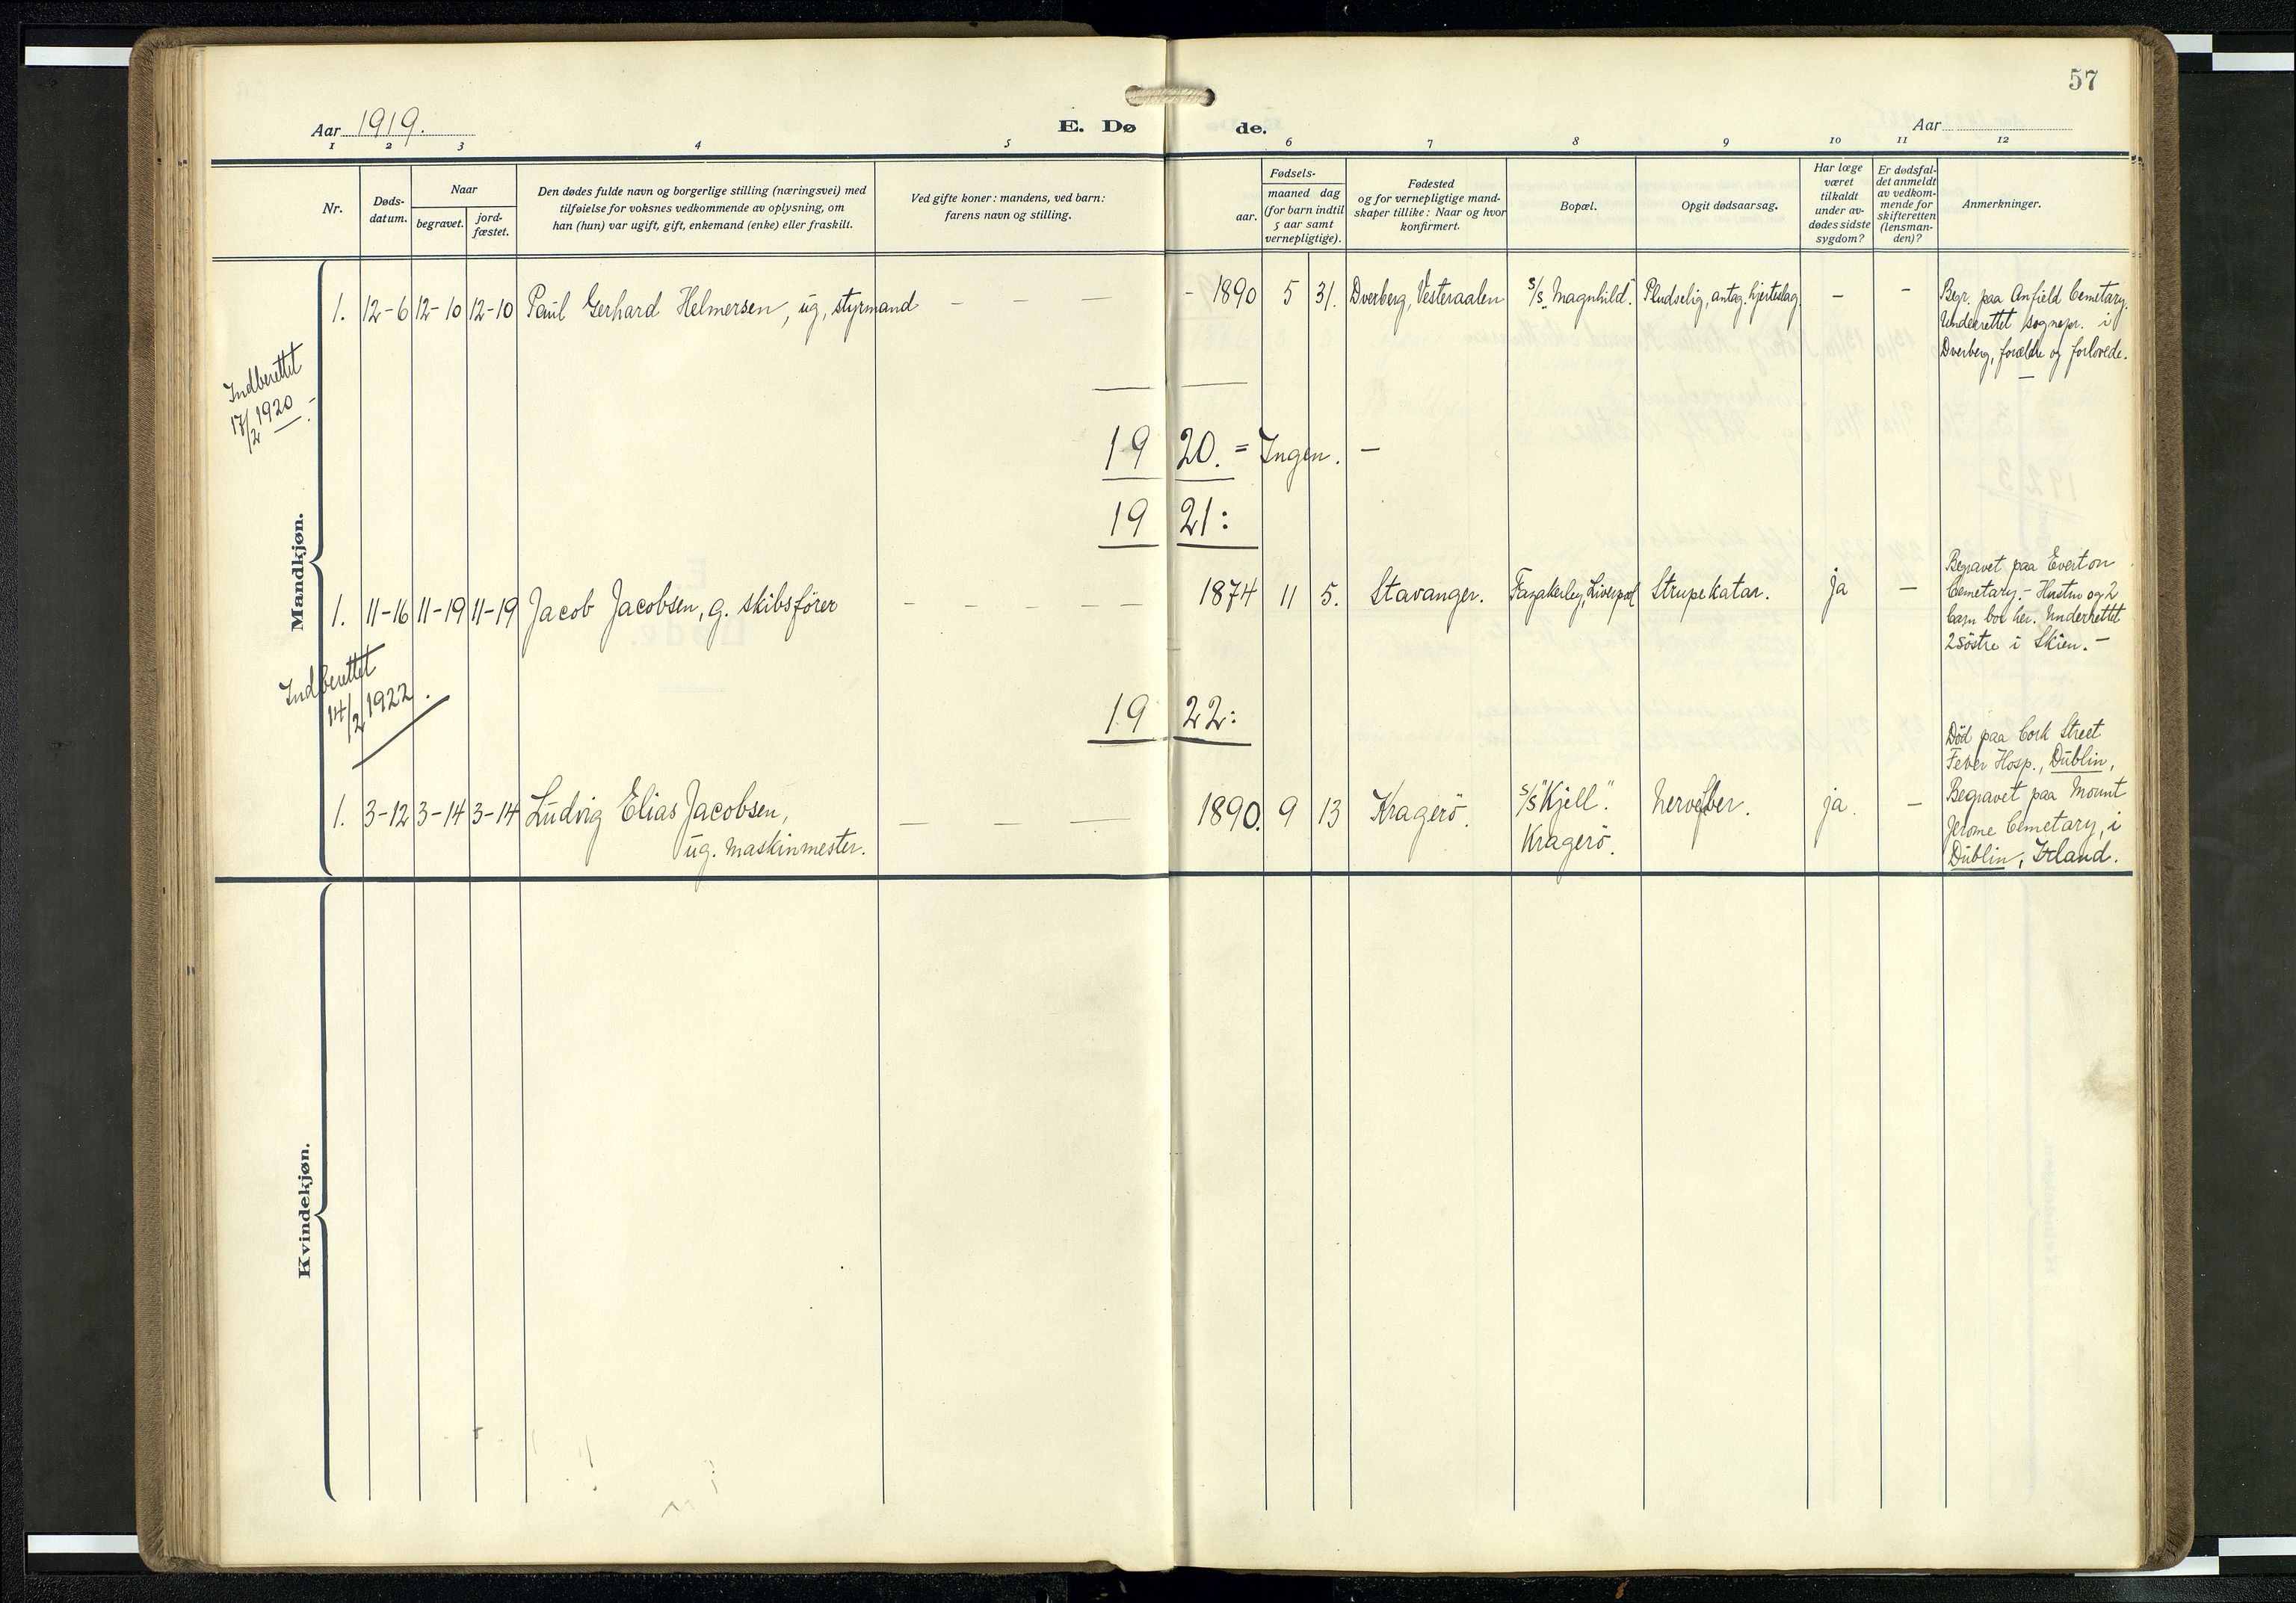 57
Aar 1919.
E. Døde.
Aar
1 2 3 4 5 6 7 8 9 10 11 12
Nr.
Døds-
datum.
Naar
begravet.
jord-
fæstet.
Den dødes fulde navn og borgerlige stilling (næringsvei) med
tilføielse for voksnes vedkommende av oplysning, om
han (hun) var ugift, gift, enkemand (enke) eller fraskilt.
Ved gifte koner: mandens, ved barn:
farens navn og stilling.
Fødsels-
aar.
maaned dag
(for barn indtil
5 aar samt
vernepligtige).
Fødested
og for vernepligtige mand-
skaper tillike: Naar og hvor
konfirmert.
Bopæl.
Opgit dødsaarsag.
Har læge
været
tilkaldt
under av-
dødes sidste
sygdom?
Er dødsfal-
det anmeldt
av vedkom-
mende for
skifteretten
(lensman-
den)?
Anmerkninger.
Mandkjøn.
1. 12-6 12-10 12-10 Paul Gerhard Helmersen, ug, styrmand - - - - 1890 5 31. Dverberg, Vesteraalen s/s "Magnhild". Pludselig, antag. hjerteslag. - -
Begr. paa Anfield Cemetary.
Underrettet sognepr. i
Dverberg, forældre og forlovede.
Indberettet
17/2 1920
1920. = Ingen. -
1921:
1. 11-16 11-19 11-19 Jacob Jacobsen, g. skibsfører - - - - - 1874 11 5. Stavanger. Fazakerley, Liverpool Strupekatar. ja -
Begravet paa Everton
Cemetary. - Hustru og 2
barn bor her. Underrettet
2 søstre i Skien. -
Indberettet
14/2 1922.
1922:
1. 3-12 3-14 3-14 Ludvig Elias Jacobsen, - - - 1890. 9 13 Kragerö. s/s "Kjell". Nervefeber. ja. -
ug. maskinmester. Kragerö.
Död paa Cork Street
Fever Hosp., Dublin,
Begravet paa Mount
Jerome Cemetary, i
Dublin, Irland.
Kvindekjøn.